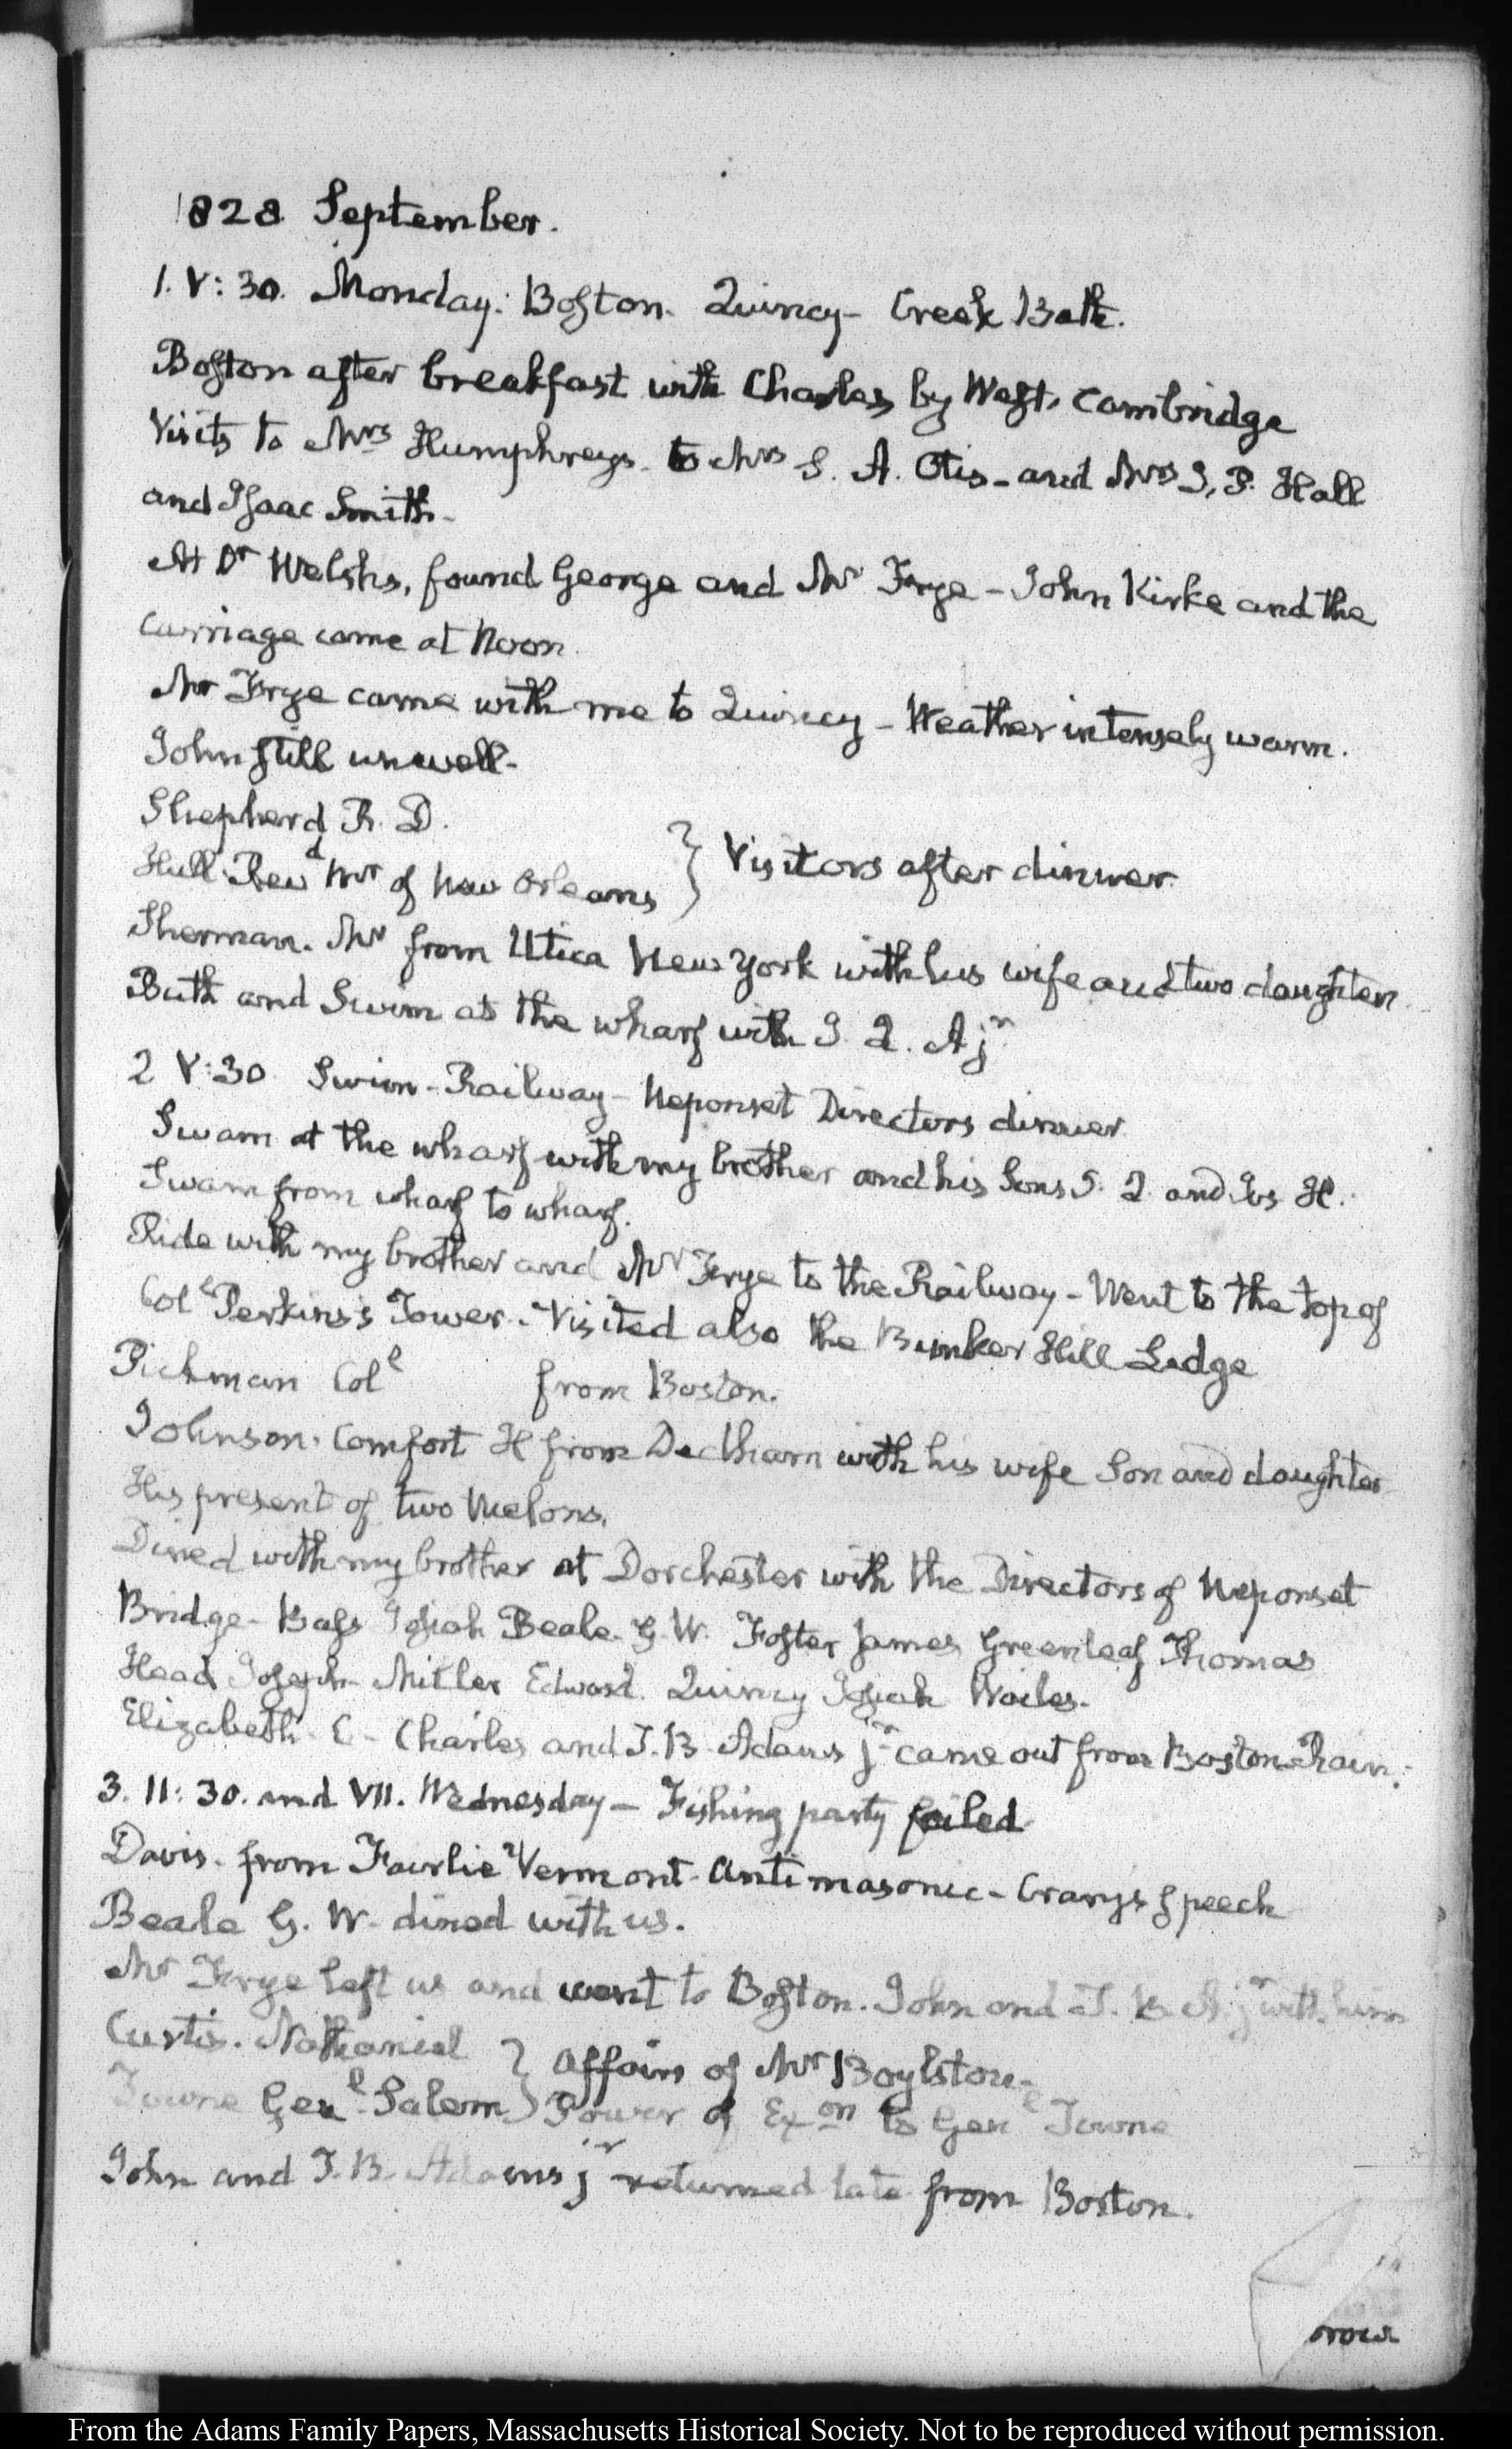 1828 September.
1. V: 30. Monday: Boston. Quincy - Creek Bath.
Boston after breakfast with Charles by West Cambridge
Visits to Mrs Humphreys. to Mrs S. A. Otis - and Mrs J. P. Hall
and Isaac Smith -
At Dr Welshs, found George and Mr Frye - John Kirke and the
Carriage came at Noon.
Mr Frye came with me to Quincy - Weather intensely warm.
John still unwell -
Shepherd R. D.
Hull Revd Mr of New Orleans } Visitors after dinner.
Sherman. Mr from Utica New York with his wife and two daughters
Bath and Swim at the wharf with J. Q. A jr
2 V:30 Swim - Railway - Neponset Directors dinner
Swam at the wharf with my brother and his Sons J. Q. and Jos H.
Swam from wharf to wharf.
Ride with my brother and Mr Frye to the Railway - Went to the top of
Coll Perkins's Tower. Visited also the Bunker Hill Ledge
Pickman Coll from Boston.
Johnson. Comfort H from Dedham with his wife Son and daughter
His present of two Melons.
Dined with my brother at Dorchester with the Directors of Neponset
Bridge - Bass Josiah Beale. G. W. Foster James Greenleaf Thomas
Head Joseph Miller Edward Quincy Josiah
Elizabeth C - Charles and T. B. Adams jr came out from Boston Rain.
3. II: 30. and VII. Wednesday - Fishing party failed
Davis. from Fairlie Vermont - Antimasonic - Crary's Speech
Beale G. W. dined with us.
Mr Frye left us and went to Boston. John and T. B. A. jr with him
Curtis. Nathaniel } Affairs of Mr Boylston -
Towne Genl Salem } Power of Exon to Genl Towne
John and T. B. Adams jr returned late from Boston.
From the Adams Family Papers, Massachusetts Historical Society. Not to be reproduced without permission.